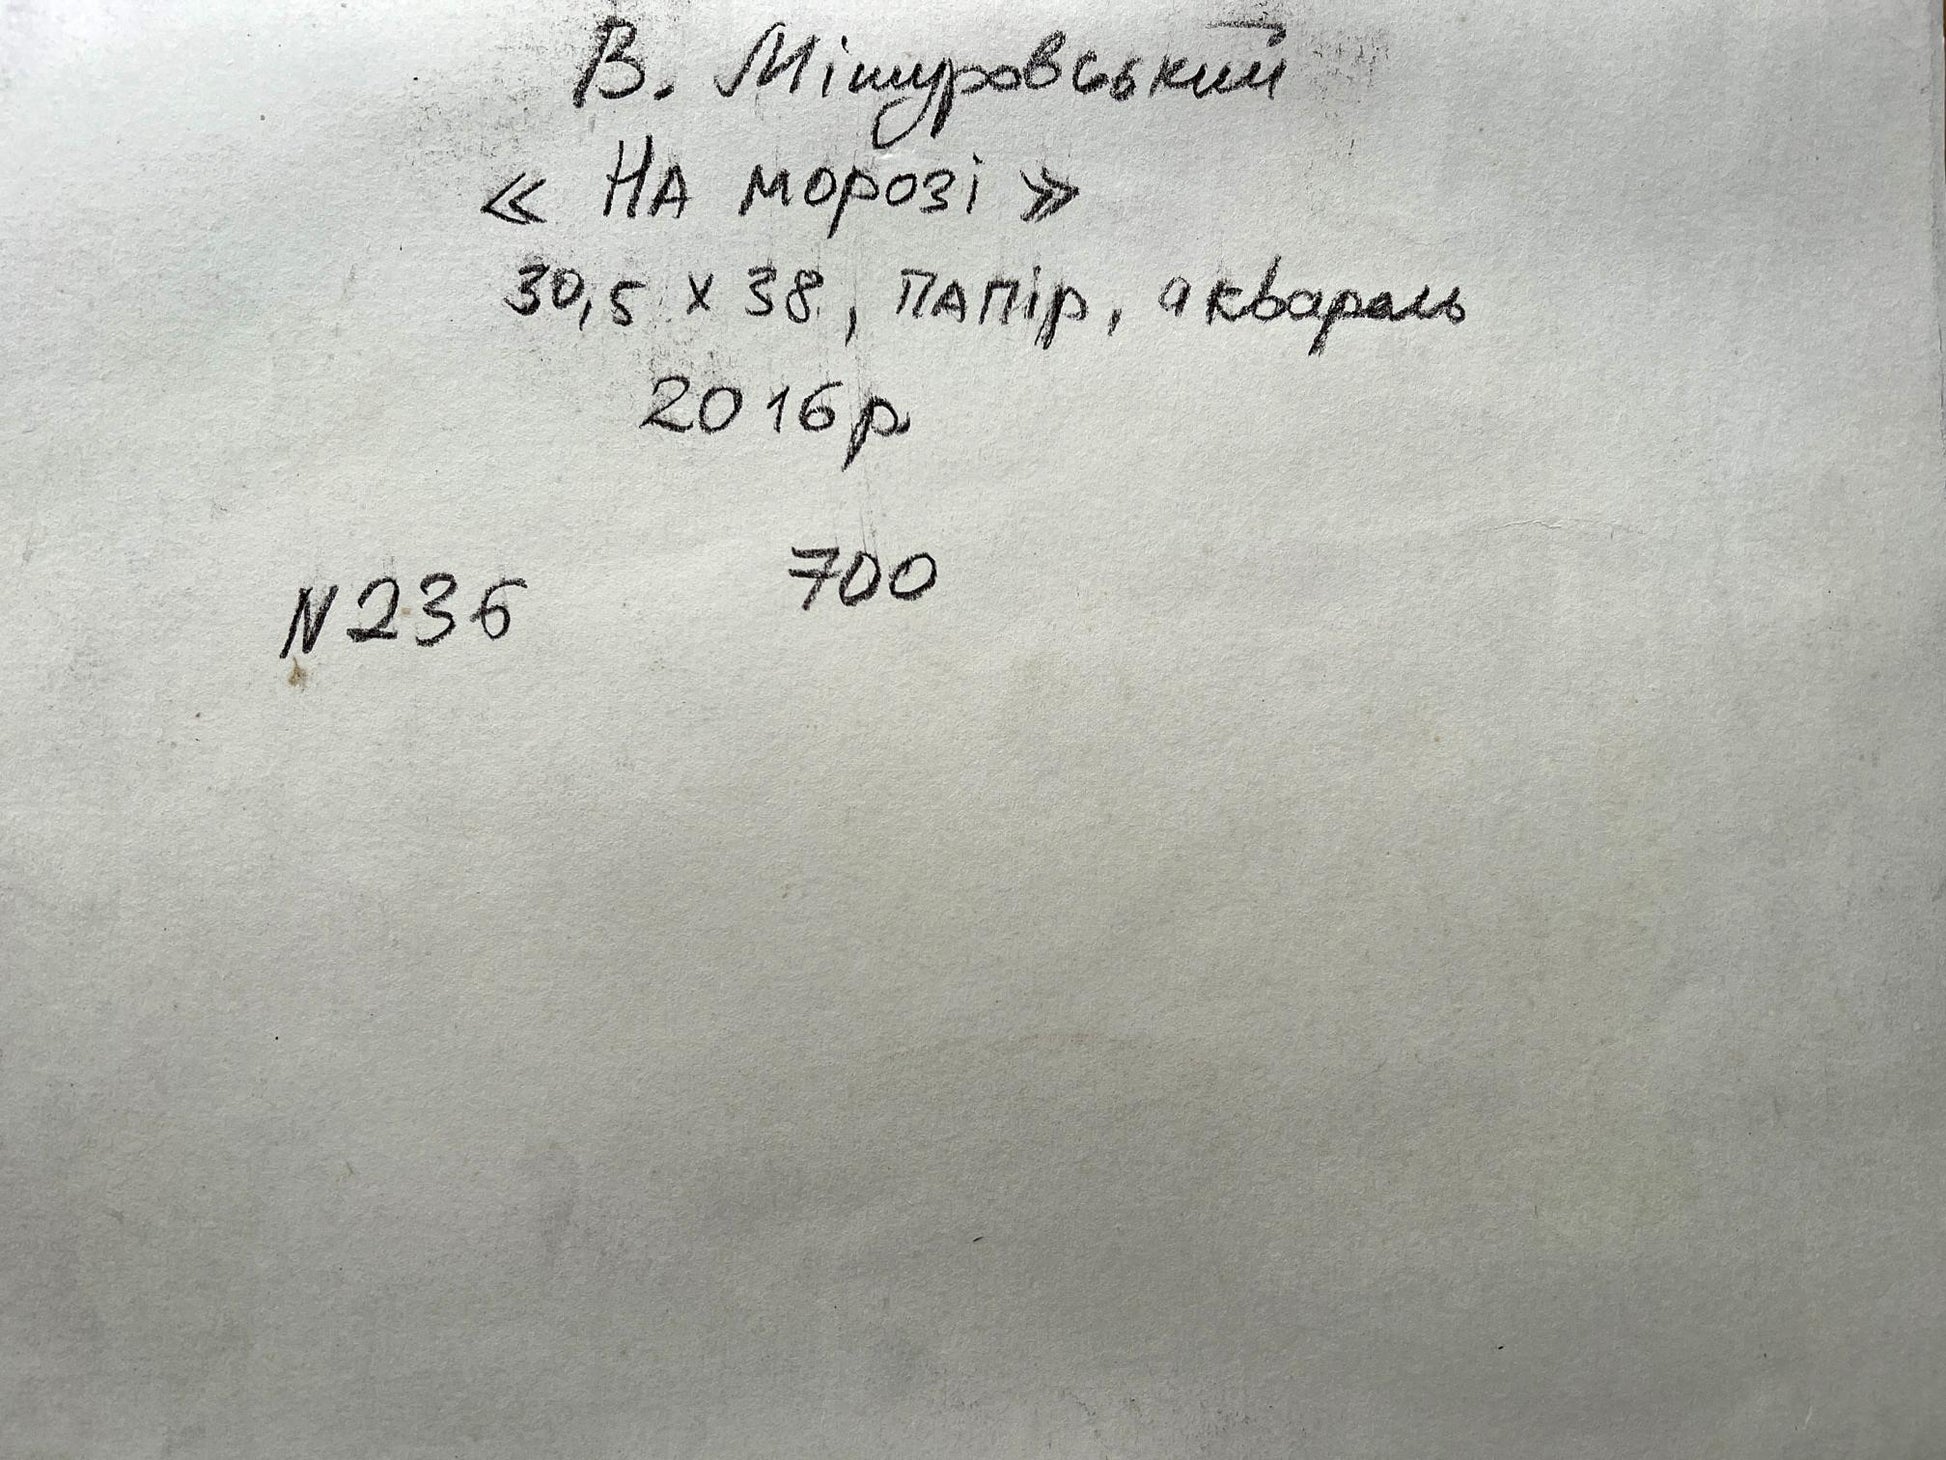 В. Мішуровський
« На морозі »
30,5 х 38, папір, акварель
2016р
N236 700